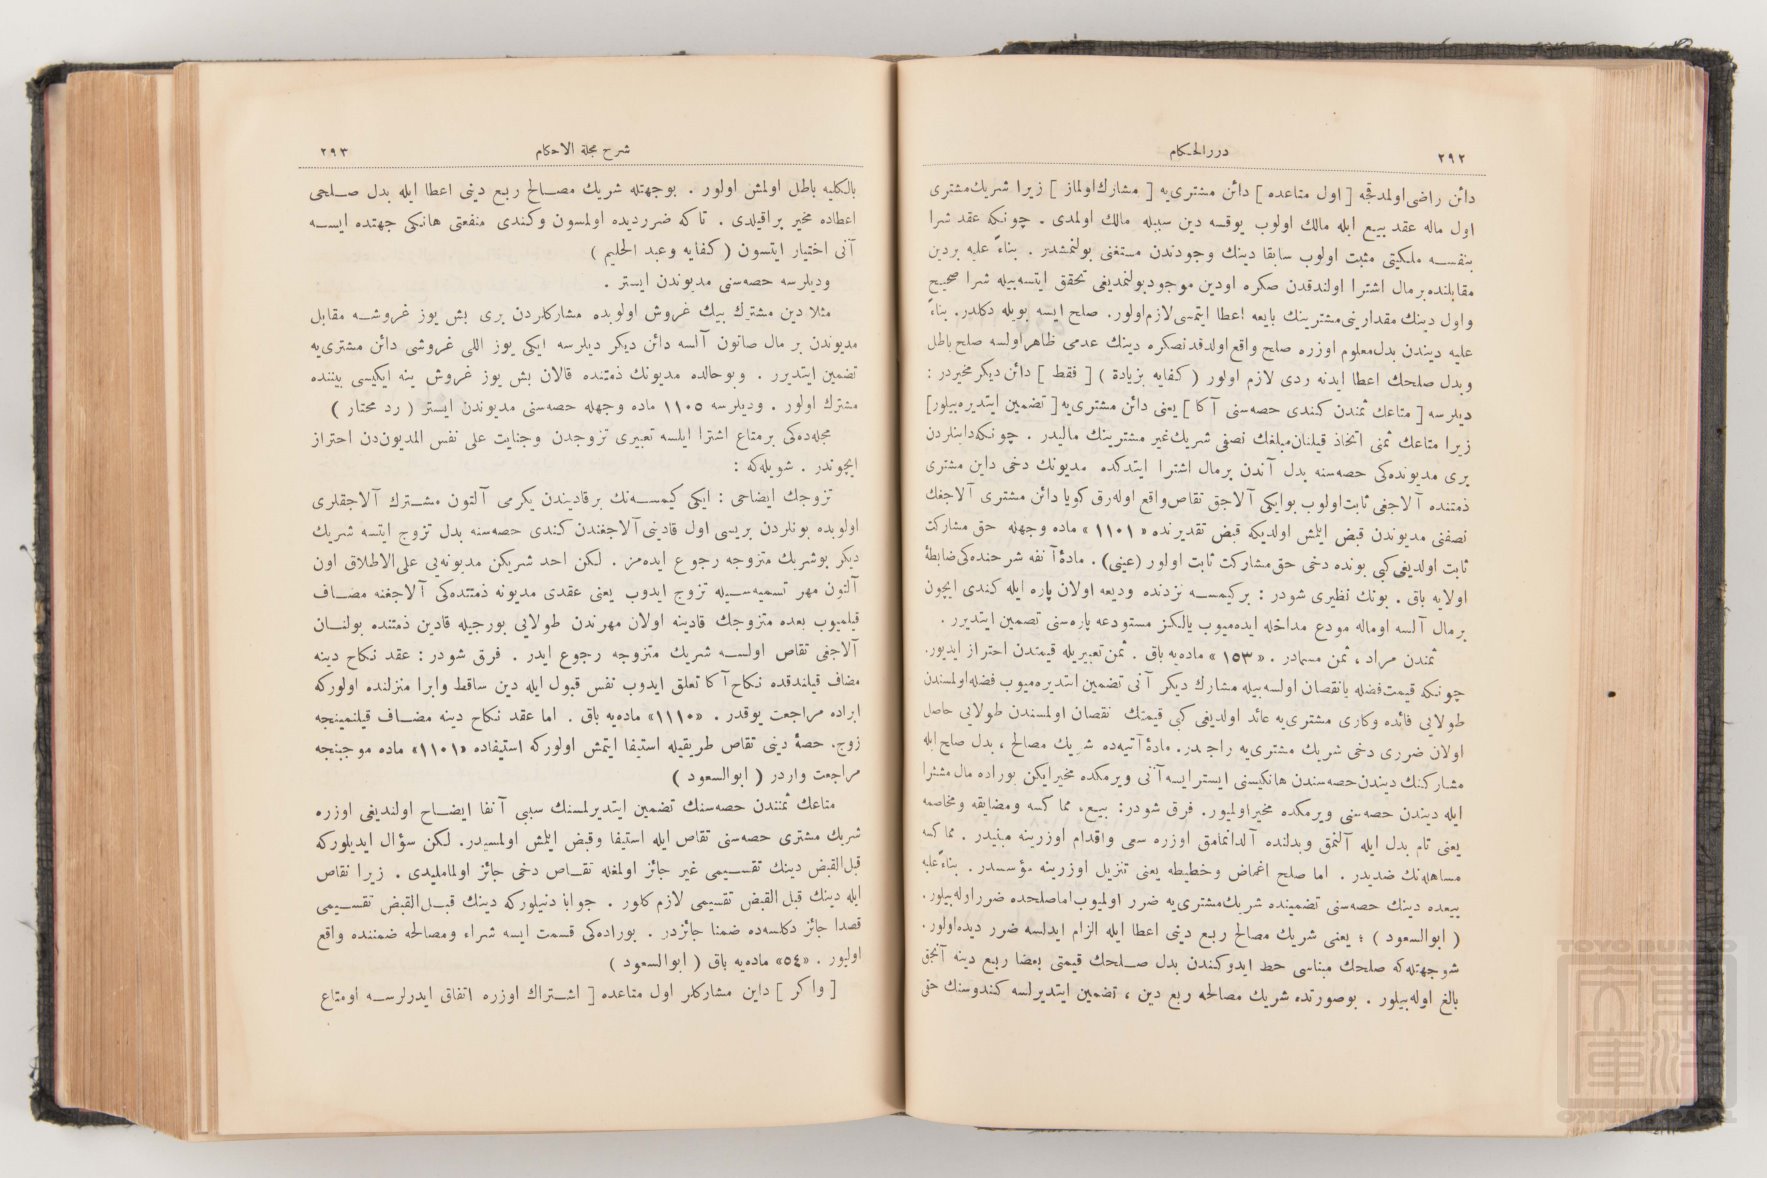 ٢٩٢
دررالحكام
دائن راضی اولمدقجه [ اول متاعده ] دائن مشتری‌یه [ مشارك اولماز ] زيرا شريك مشتری
اول ماله عقد بيع ايله مالك اولوب يوقسه دين سببله مالك اولمدی . چونكه عقد شرا
بنفسه ملكيتی مثبت اولوب سابقا دينك وجودندن مستغنی بولنمشدر . بناءً عليه بردين
مقابلنده برمال اشترا اولندقدن صكره اودين موجود بولنمديغی تحقق ايتسه بيله شرا صحيح
واول دينك مقدارينی مشترينك بايعه اعطا ايتمسی لازم اولور . صلح ايسه بويله دكلدر. بناءً
عليه ديندن بدل معلوم اوزره صلح واقع اولدقدنصكره دينك عدمی ظاهر اولسه صلح باطل
وبدل صلحك اعطا ايدنه ردی لازم اولور ( كفايه بزيادة ) [ فقط ] دائن ديكر مخيردر :
ديلرسه [ متاعك ثمندن كندی حصه‌سنی آكا ] يعنی دائن مشتری‌يه [ تضمين ايتديره‌بيلور]
زيرا متاعك ثمنی اتخاذ قيلنان مبلغك نصفی شريك غير مشترينك ماليدر . چونكه داينلردن
بری مديونده‌كی حصه‌سنه بدل آندن برمال اشترا ايتدكده مديونك دخی داين مشتری
ذمتنده آلاجغی ثابت اولوب بوايكی آلاجق تقاص واقع اوله‌رق كويا دائن مشتری آلاجغك
نصفنی مديوندن قبض ايلمش اولديكه قبض تقديرنده « ١١٠١ » ماده وجهله حق مشاركت
ثابت اولديغی كبی بونده دخی حق مشاركت ثابت اولور (عينی) . مادۀ آنفه شرحنده‌كی ضابطۀ
اولايه باق . بونك نظيری شودر : بركيمسه نزدنده وديعه اولان پاره ايله كندی ايچون
برمال آلسه اوماله مودع مداخله ايده‌ميوب يالكز مستودعه پاره‌سنی تضمين ايتديرر .
ثمندن مراد ، ثمن مسمادر . « ١٥٣ » ماده‌يه باق . ثمن تعبيريله قيمتدن احتراز ايديور.
چونكه قيمت فضله يا نقصان اولسه بيله مشارك ديكر آنی تضمين ايتديره‌ميوب فضله اولمسندن
طولايی فائده وكاری مشتری‌يه عائد اولديغی كبی قيمتك نقصان اولمسندن طولايی حاصل
اولان ضرری دخی شريك مشتری‌يه راجعدر. مادۀ آتيه‌ده شريك مصالح ، بدل صلح ايله
مشاركنك ديندن حصه‌سندن هانكيسنی ايستر ايسه آنی ويرمكده مخير ايكن بوراده مال مشترا
ايله ديندن حصه‌سنی ويرمكده مخير اولميور. فرق شودر: بيع، مماكسه ومضايقه ومخاصمه
يعنی تام بدل ايله آلنمق وبدلنده آلدانمامق اوزره سعی واقدام اوزرينه مبنيدر . مماكسه
مساهله‌نك ضديدر . اما صلح اغماض وخطيطه يعنی تنزيل اوزرينه مؤسسدر . بناءً عليه
بيعده دينك حصه‌سنی تضمينده شريك مشتری‌يه ضرر اولميوب اما صلحده ضرر اوله‌بيلور.
( ابوالسعود ) ؛ يعنی شريك مصالح ربع دينی اعطا ايله الزام ايدلسه ضرر ديده اولور.
شوجهتله‌كه صلحك مبناسی حط ايدوكندن بدل صلحك قيمتی بعضا ربع دينه آنجق
بالغ اوله‌بيلور . بوصورتده شريك مصالحه ربع دين ، تضمين ايتديرلسه كندوسنك حقی
شرح مجلة الاحكام
٢٩٣
بالكليه باطل اولمش اولور . بوجهتله شريك مصالح ربع دينی اعطا ايله بدل صلحی
اعطاده مخير براقيلدی . تاكه ضررديده اولمسون وكندی منفعتی هانكی جهتده ايسه
آنی اختيار ايتسون ( كفايه وعبد الحليم )
وديلرسه حصه‌سنی مديوندن ايستر .
مثلا دين مشترك بيك غروش اولوبده مشاركلردن بری بش يوز غروشه مقابل
مديوندن بر مال صاتون آلسه دائن ديكر ديلرسه ايكی يوز اللی غروشی دائن مشتری‌يه
تضمين ايتديرر . وبوحالده مديونك ذمتنده قالان بش يوز غروش ينه ايكيسی بيننده
مشترك اولور . وديلرسه ١١٠٥ ماده وجهله حصه‌سنی مديوندن ايستر ( رد محتار )
مجله‌ده‌كی برمتاع اشترا ايلسه تعبيری تزوجدن وجنايت علی نفس المديون‌دن احتراز
ايچوندر . شويله‌كه :
تزوجك ايضاحی : ايكی كيمسه‌نك برقاديندن يكرمی آلتون مشترك آلاجقلری
اولوبده بونلردن بريسی اول قادينی آلاجغندن كندی حصه‌سنه بدل تزوج ايتسه شريك
ديكر بوشريك متزوجه رجوع ايده‌مز . لكن احد شريكن مديونه‌يی علی‌الاطلاق اون
آلتون مهر تسميه‌سيله تزوج ايدوب يعنی عقدی مديونه ذمتنده‌كی آلاجغنه مضاف
قيلميوب بعده متزوجك قادينه اولان مهرندن طولايی بورجيله قادين ذمتنده بولنان
آلاجغی تقاص اولسه شريك متزوجه رجوع ايدر . فرق شودر : عقد نكاح دينه
مضاف قيلندقده نكاح آكا تعلق ايدوب نفس قبول ايله دين ساقط وابرا منزلنده اولوركه
ابراده مراجعت يوقدر . «١١١٠» ماده‌يه باق . اما عقد نكاح دينه مضاف قيلنمينجه
زوج. حصۀ دينی تقاص طريقيله استيفا ايتمش اولوركه استيفاده «١١٠١» ماده موجبنجه
مراجعت واردر ( ابوالسعود )
متاعك ثمنندن حصه‌سنك تضمين ايتديرلمسنك سببی آنفا ايضاح اولنديغی اوزره
شريك مشتری حصه‌سنی تقاص ايله استيفا وقبض ايلمش اولمسيدر. لكن سؤال ايديلوركه
قبل‌القبض دينك تقسيمی غير جائز اولمغله تقاص دخی جائز اولماملیدی . زيرا تقاص
ايله دينك قبل القبض تقسيمی لازم كلور . جوابا دنيلوركه دينك قبل‌القبض تقسيمی
قصدا جائز دكلسه‌ده ضمنا جائزدر . بوراده‌كی قسمت ايسه شراء ومصالحه ضمننده واقع
اوليور . «٥٤» ماده‌يه باق ( ابوالسعود )
[ واكر ] داين مشاركلر اول متاعده [ اشتراك اوزره اتفاق ايدرلرسه اومتاع
TOYO BUNKO